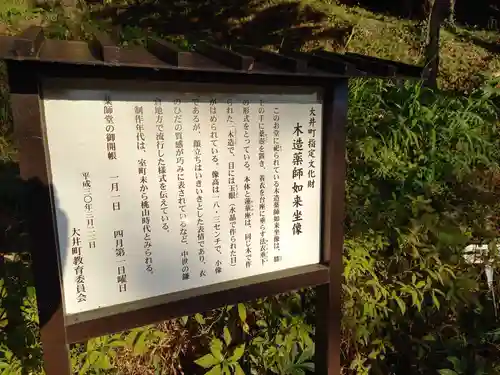 大井町指定文化財
木造薬師如来坐像
このお堂に祀られている木造薬師如来坐像は、膝
上の手に薬壺を置き、着衣を台座に垂らす法衣垂下
の形式をとっている。本体と蓮華座は、同じ木で作
られた一木造で、目には玉眼(水晶で作られた目)
がはめられている。像高は一八・三センチで、小像
であるが、顔立ちはいきいきとした表情であり、衣
のひだの質感が巧みに表されているなど、中世の鎌
倉地方で流行した様式を伝えている。
制作年代は、室町末から桃山時代とみられる。
薬師堂の御開帳 一月一日 四月第一日曜日
平成三〇年三月三一日
大井町教育委員会